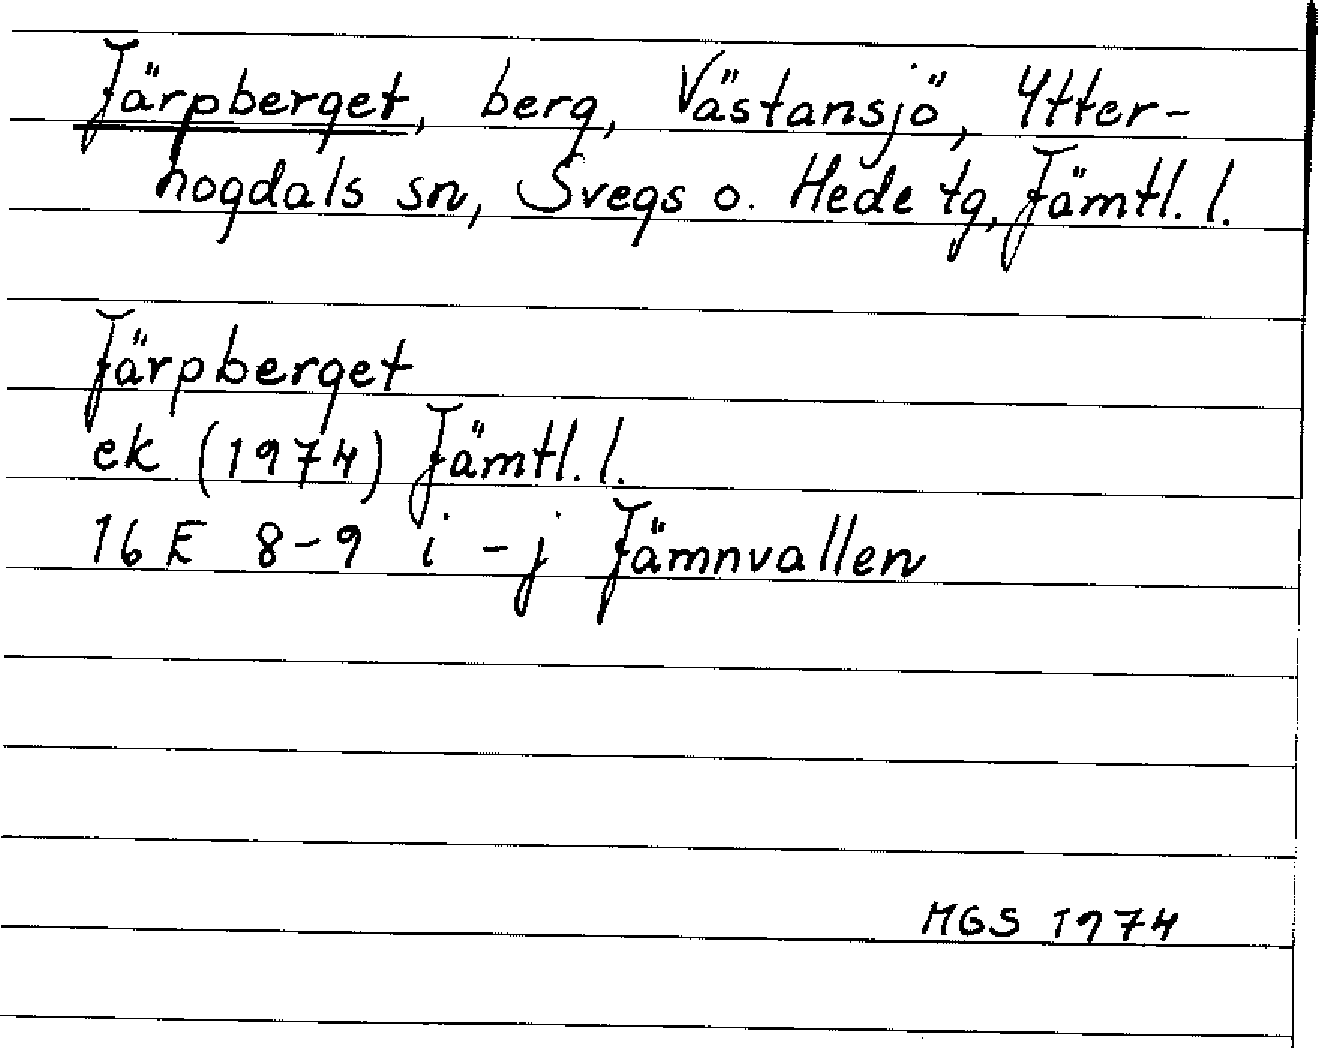 Järpberget, berg, Västansjö, Ytter-
hogdals sn, Svegs o. Hede tg, Jämtl. l.
Järpberget
ek (1974) Jämtl. l.
16 E 8-9 i - j Jämnvallen
MGS 1974